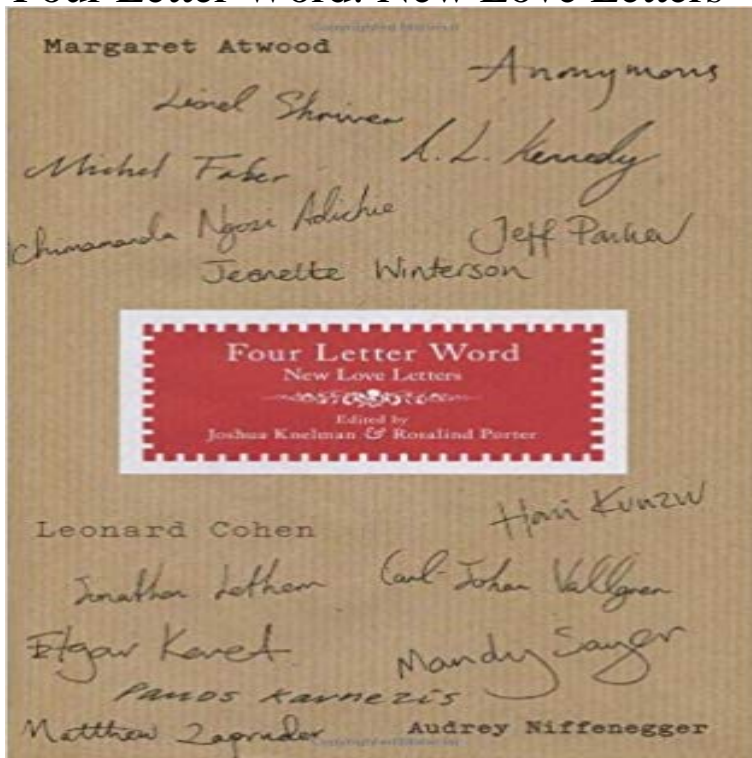 Four Letter Word: New Love Letters
Copyrighted Material
Margaret Atwood
Anonymous
Lionel Shriver
A. L. Kennedy
Michel Faber
Chimamanda Ngozi Adichie
Jeff Parker
Jeanette Winterson
Four Letter Word
New Love Letters
Edited by
Joshua Knelman & Rosalind Porter
Hari Kunzru
Leonard Cohen
Jonathan Lethem
Carl-Johan Vallgren
Etgar Keret
Mandy Sayer
Panos Karnezis
Matthew Zapruder
Audrey Niffenegger
Copyrighted Material